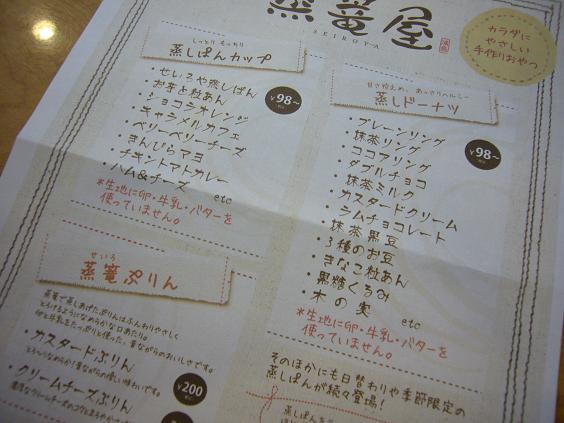 蒸篭屋
SEIROYA
カラダに
やさしい
手作りおやつ
しっとり もっちり
蒸しぱんカップ
¥98~
・せいろや蒸しぱん
・お芋と粒あん
・ショコラオレンジ
・キャラメルカフェ
・ベリーベリーチーズ
・きんぴらマヨ
・チキントマトカレー
・ハム&チーズ etc
*生地に卵・牛乳・バターを
使っていません。
甘さ控えめ、あっさりヘルシー
蒸しドーナツ
¥98~
・プレーンリング
・抹茶リング
・ココアリング
・ダブルチョコ
・抹茶ミルク
・カスタードクリーム
・ラムチョコレート
・抹茶黒豆
・3種のお豆
・きなこ粒あん
・黒糖くるみ
・木の実 etc
*生地に卵・牛乳・バターを
使っていません。
せいろ
蒸篭ぷりん
蒸篭で蒸しあげたぷりんはふんわりやさしく
とろけるようになめらかな口あたり。
卵と牛乳をたっぷりと使った、昔ながらのおいしさです。
・カスタードぷりん
¥200
・クリームチーズぷりん
そのほかにも日替わりや季節限定の
蒸しぱんが続々登場!